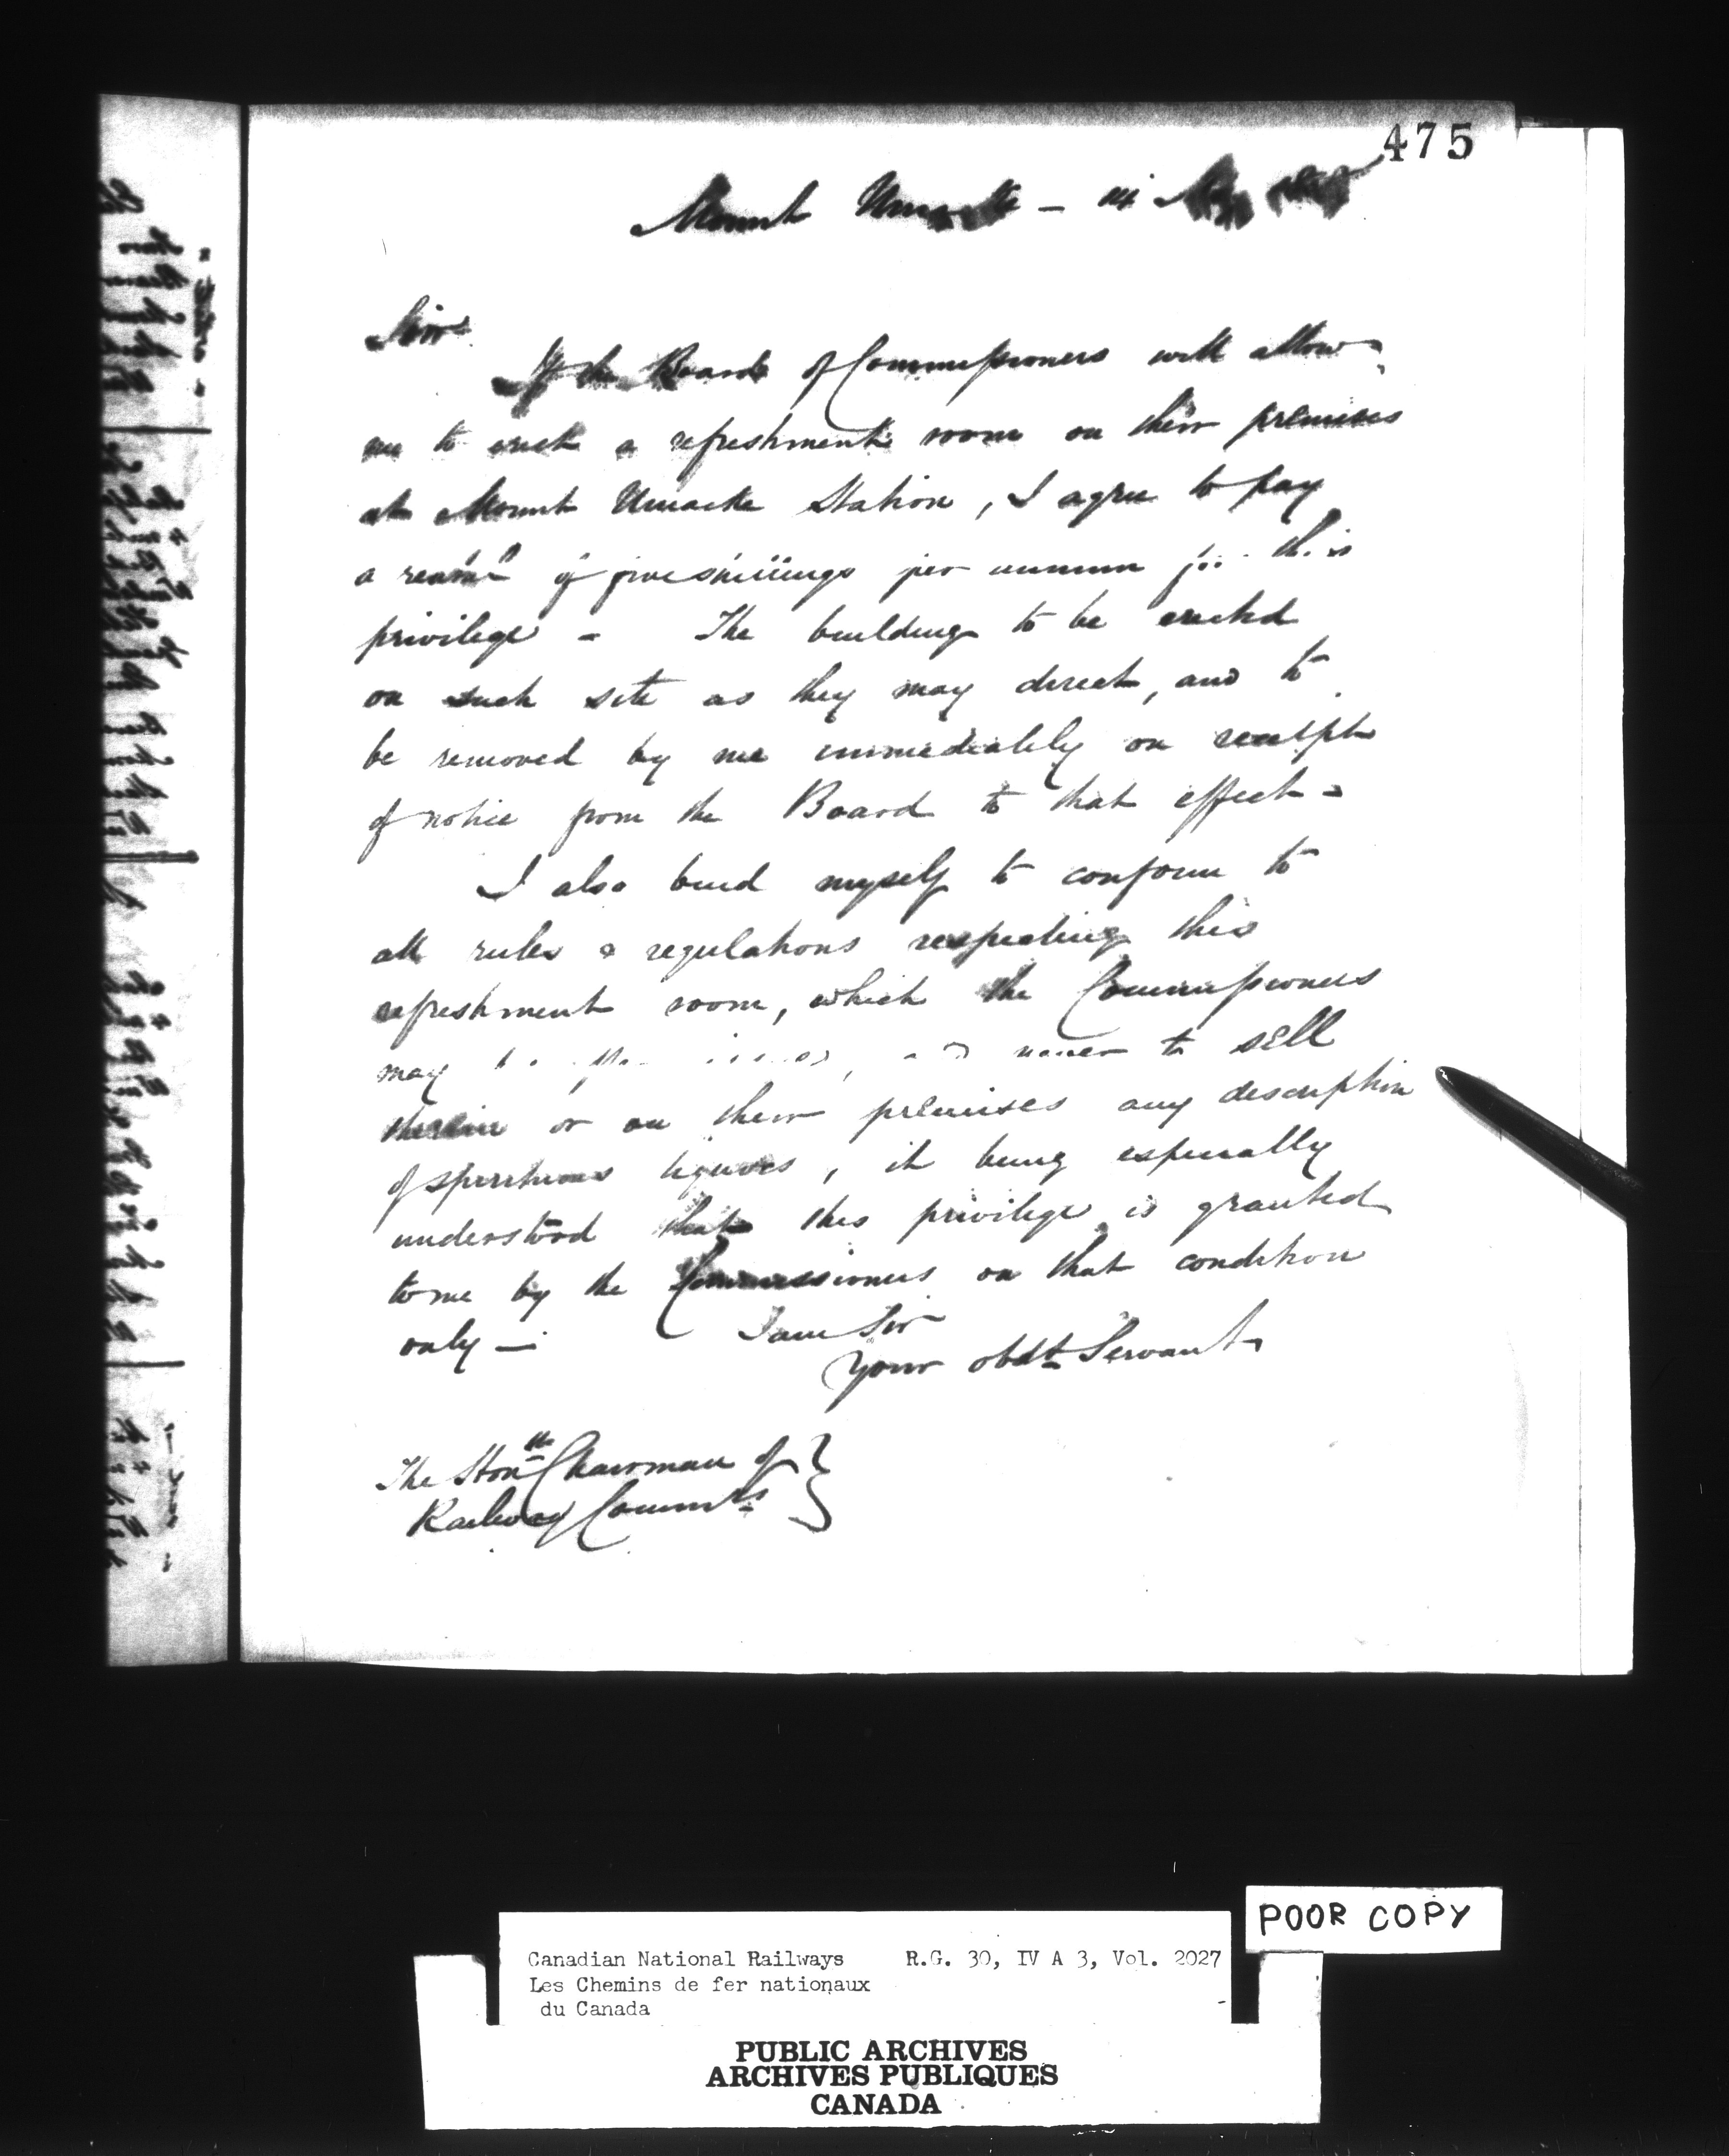 475
Mount
Sir
If the Board of Commissioners will allow
me to erect a refreshment room on their premises
at Mount Uniacke Station, I agree to pay
a rental of five shillings per annum for this
privilege - The building to be erected
on such site as they may direct, and to
be removed by me immediately on receipt
of notice from the Board to that effect -
I also bind myself to conform to
all rules & regulations respecting this
refreshment room, which the Commissioners
may to sell
therein or on their premises any description
of spirituous liquors, it being especially
understood that this privilege is granted
to me by the Commissioners on that condition
only —
I am Sir
Your obdt Servant
The Honble Chairman of
Railway Commrs
POOR COPY
Canadian National Railways R.G. 30, IV A 3, Vol. 2027
Les Chemins de fer nationaux
du Canada
PUBLIC ARCHIVES
ARCHIVES PUBLIQUES
CANADA